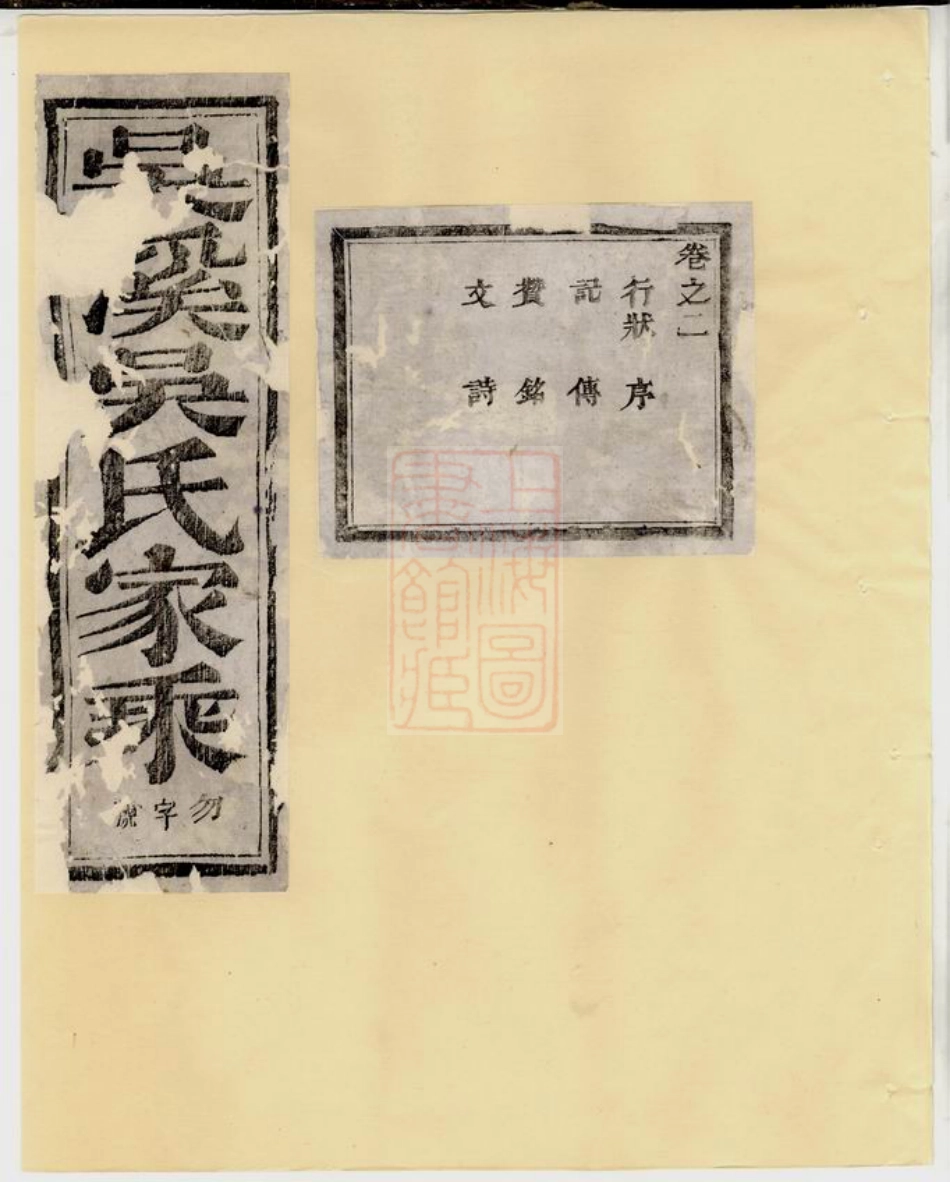 溪吳氏家乘
勿字號
卷之二
行狀 序
記 傳
贊 銘
文 詩
上海圖
書館藏